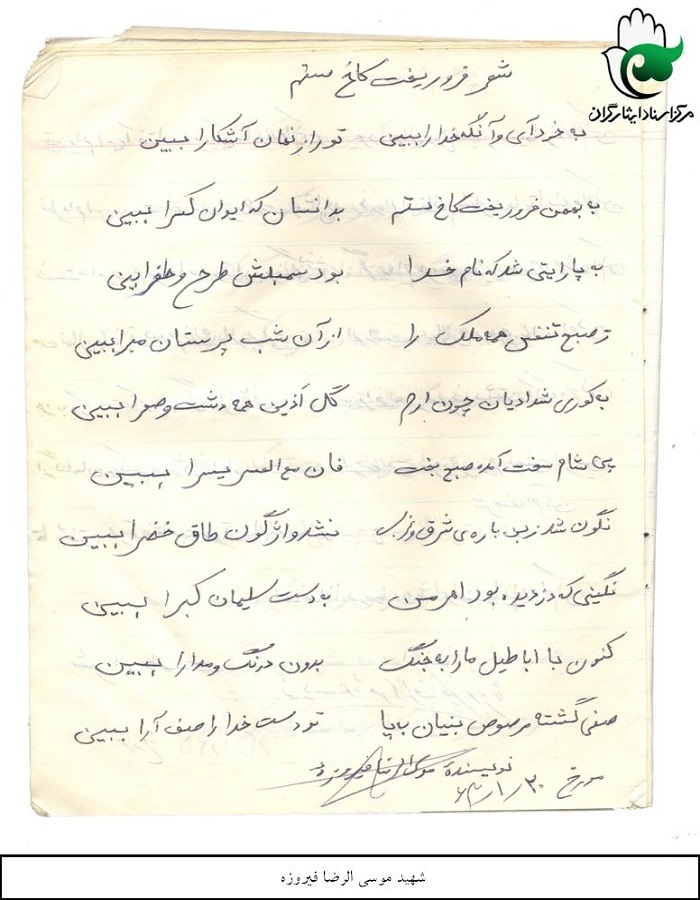 مرکز اسناد ایثارگران
شعر فرو ریخت کاخ ستم
به خود آی و آنگه خدا را ببین تو راز نهان آشکارا ببین
به بهمن فرو ریخت کاخ ستم بدانسان که ایوان کسرا ببین
به پا رایتی شد که نام خدا بود سمبلش طرح و طغرا ببین
ز صبح تنفس همه ملک را از آن شب پرستان مبرا ببین
به کوری شدادیان چون ارم گل آذین همه دشت و صحرا ببین
پی شام سخت آمد صبح بخت فان مع العسر یسرا ببین
نگون شد زمین باره ی شرق و غرب نشد واژگون طاق خضرا ببین
نگینی که دزدیده بود اهرمن به دست سلیمان کبرا ببین
کنون با اباطیل ما را به جنگ بدون درنگ و مدارا ببین
صفی گشته مرصوص بنیان به پا تو دست خدا را صف آرا ببین
نویسنده موسی الرضا فیروزه
مورخ ۶۳/۱/۳۰
شهید موسی الرضا فیروزه